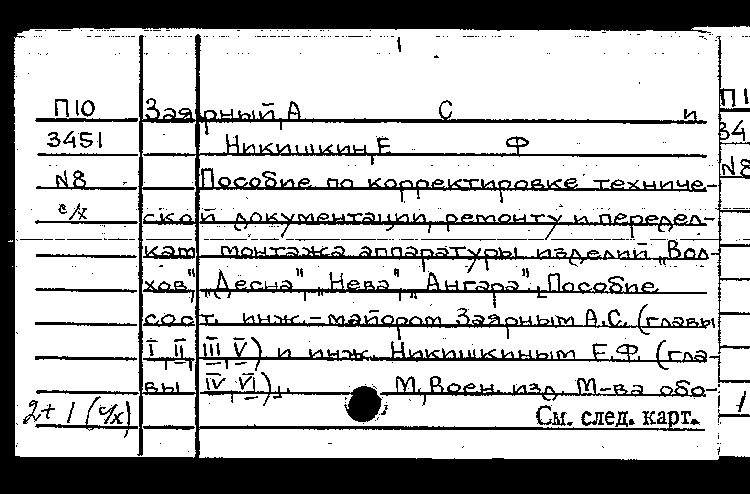 П10 Заярный, А С и
3451 Никишкин, Е Ф
N8 Пособие по корректировке техниче-
с/х ской документации, ремонту и передел-
кам монтажа аппаратуры изделий „Вол-
хов", „Десна", „Нева", „Ангара". Пособие
сост. инж.-майором Заярным А.С. (главы
I, II, III, V) и инж. Никишкиным Е.Ф. (гла-
вы IV, VI). М, Воен. изд. М-ва обо-
2+1 (с/х) См. след. карт.
П1
34
N8
1